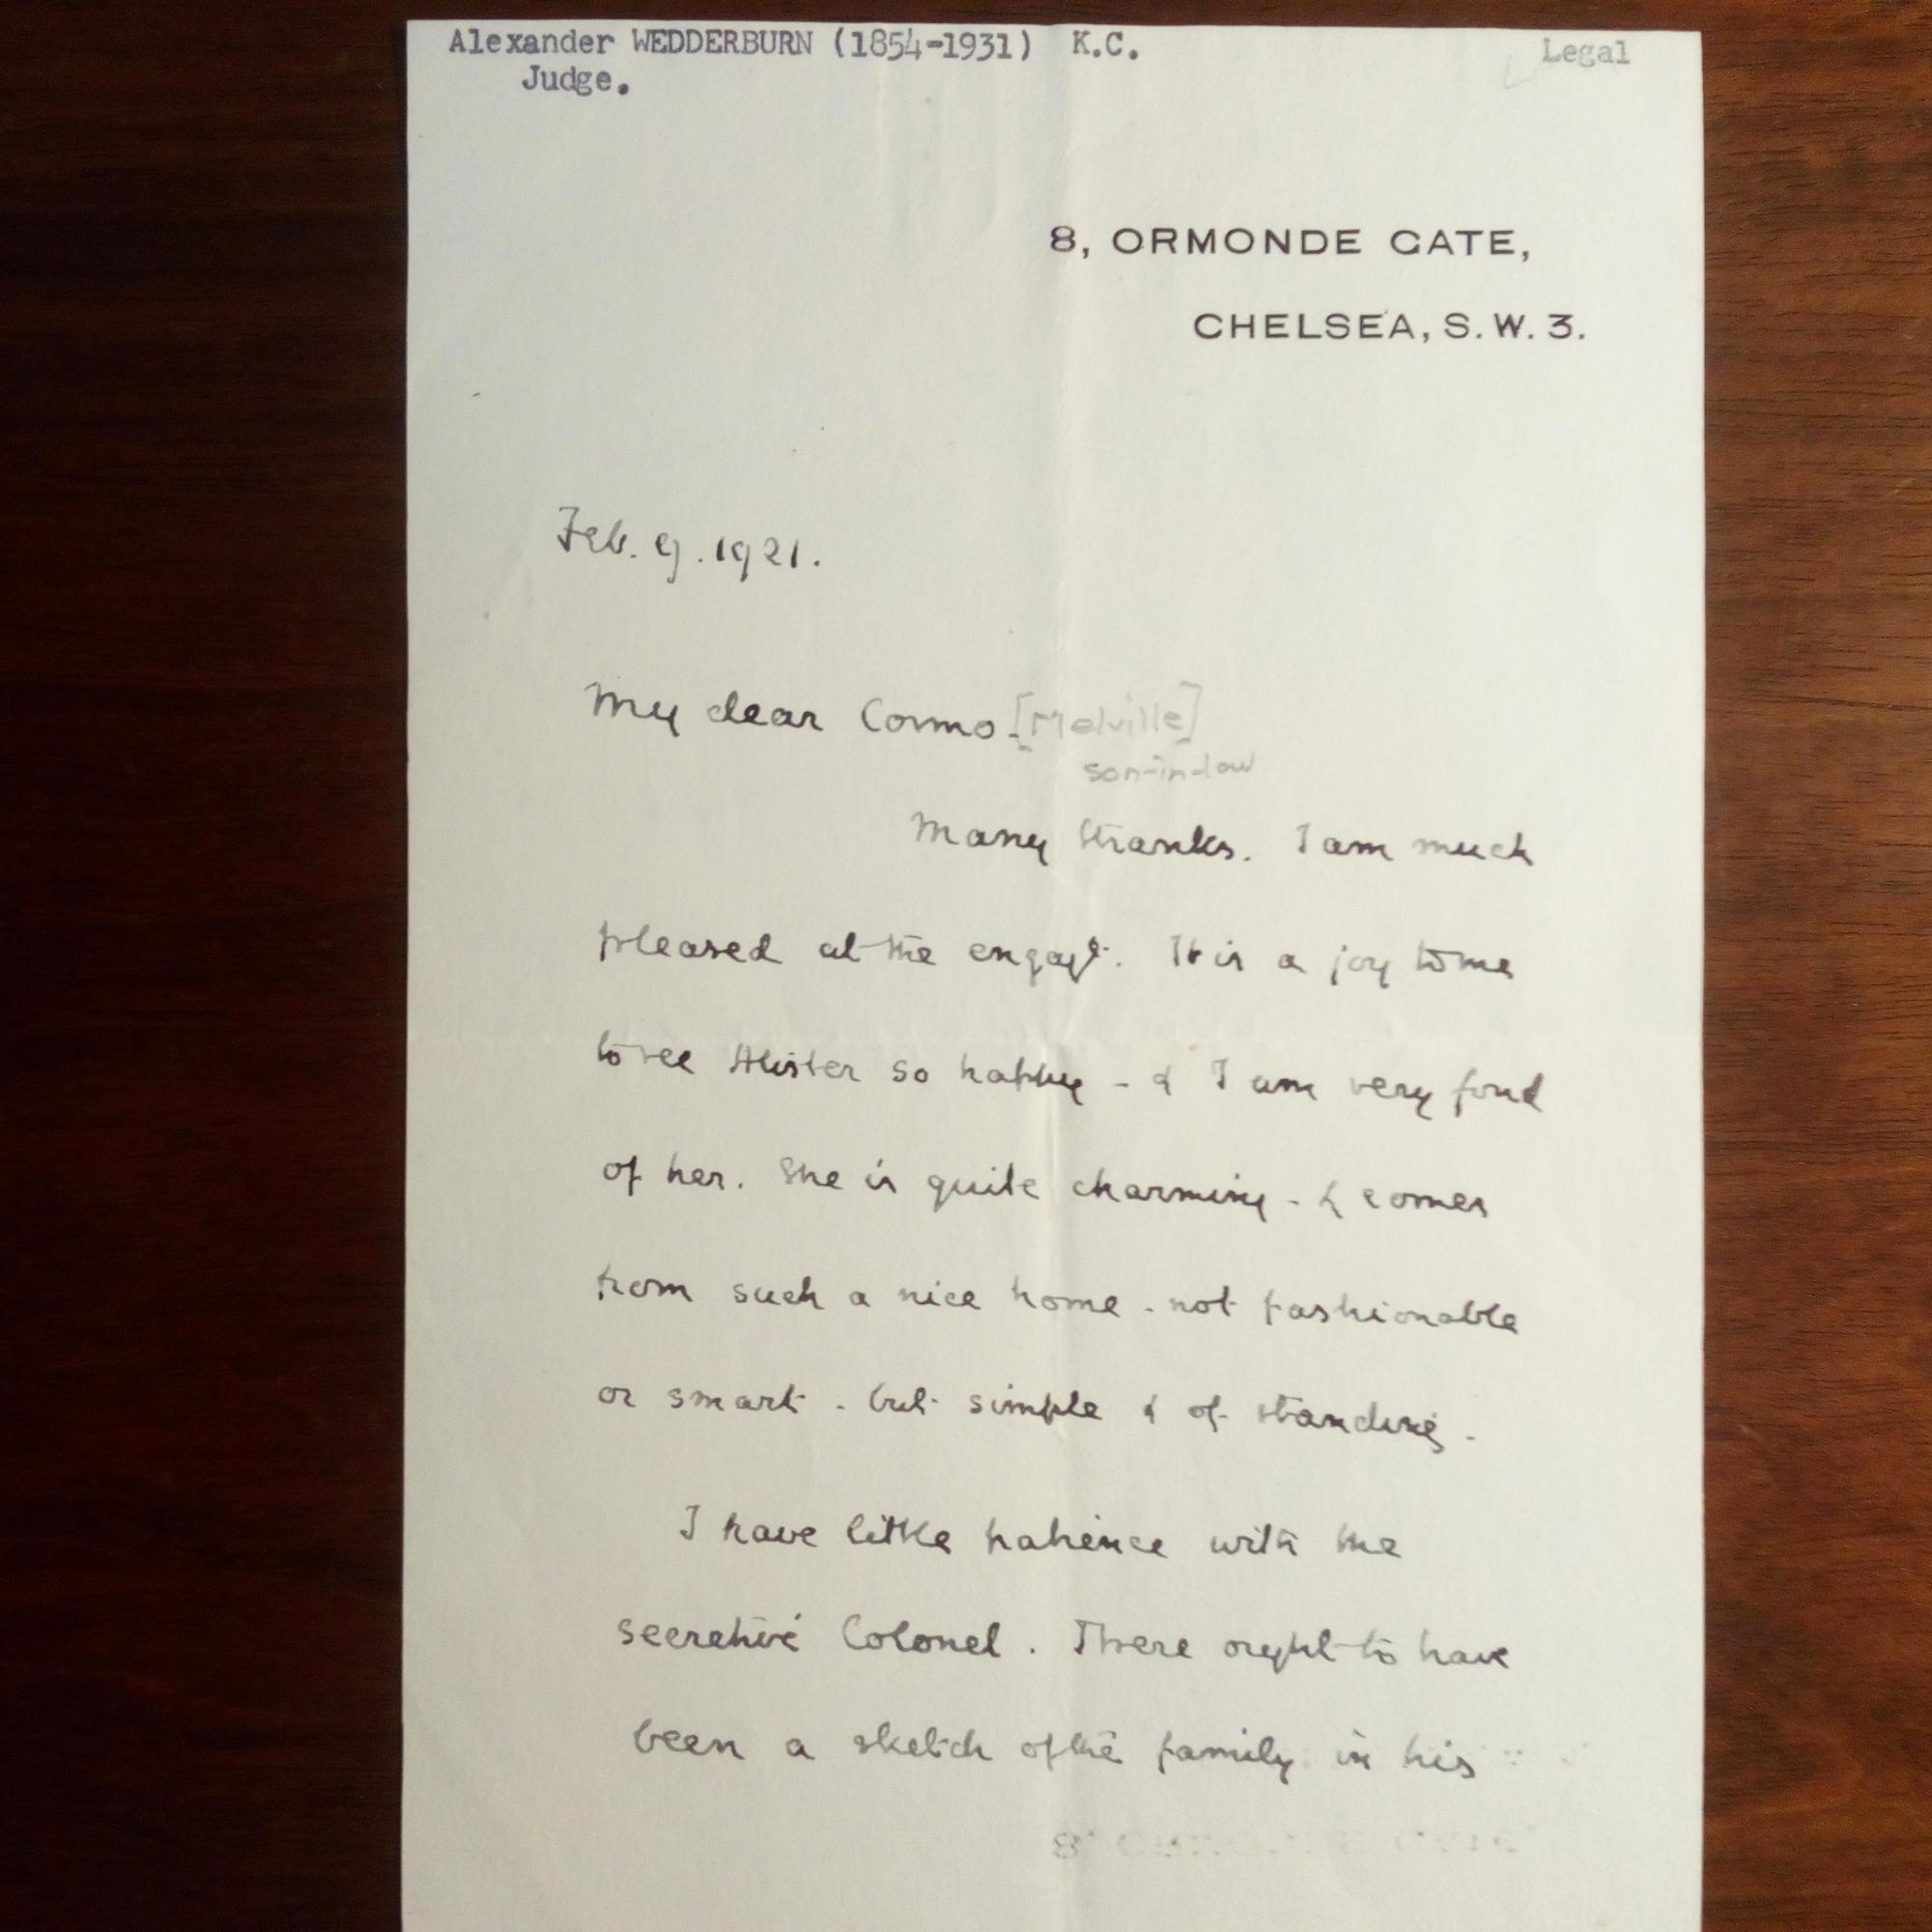 Alexander WEDDERBURN (1854-1931) K.C.
Legal
Judge.
8, ORMONDE GATE,
CHELSEA, S.W.3.
Feb. 9. 1921.
My dear Cosmo. [Melville]
son-in-law
Many thanks. I am much
pleased at the engagt. It is a joy to me
to see Alister so happy - & I am very fond
of her. She is quite charming - & comes
from such a nice home - not fashionable
or smart - but simple & of standing -
I have little patience with the
secretive Colonel. There ought to have
been a sketch of the family in his